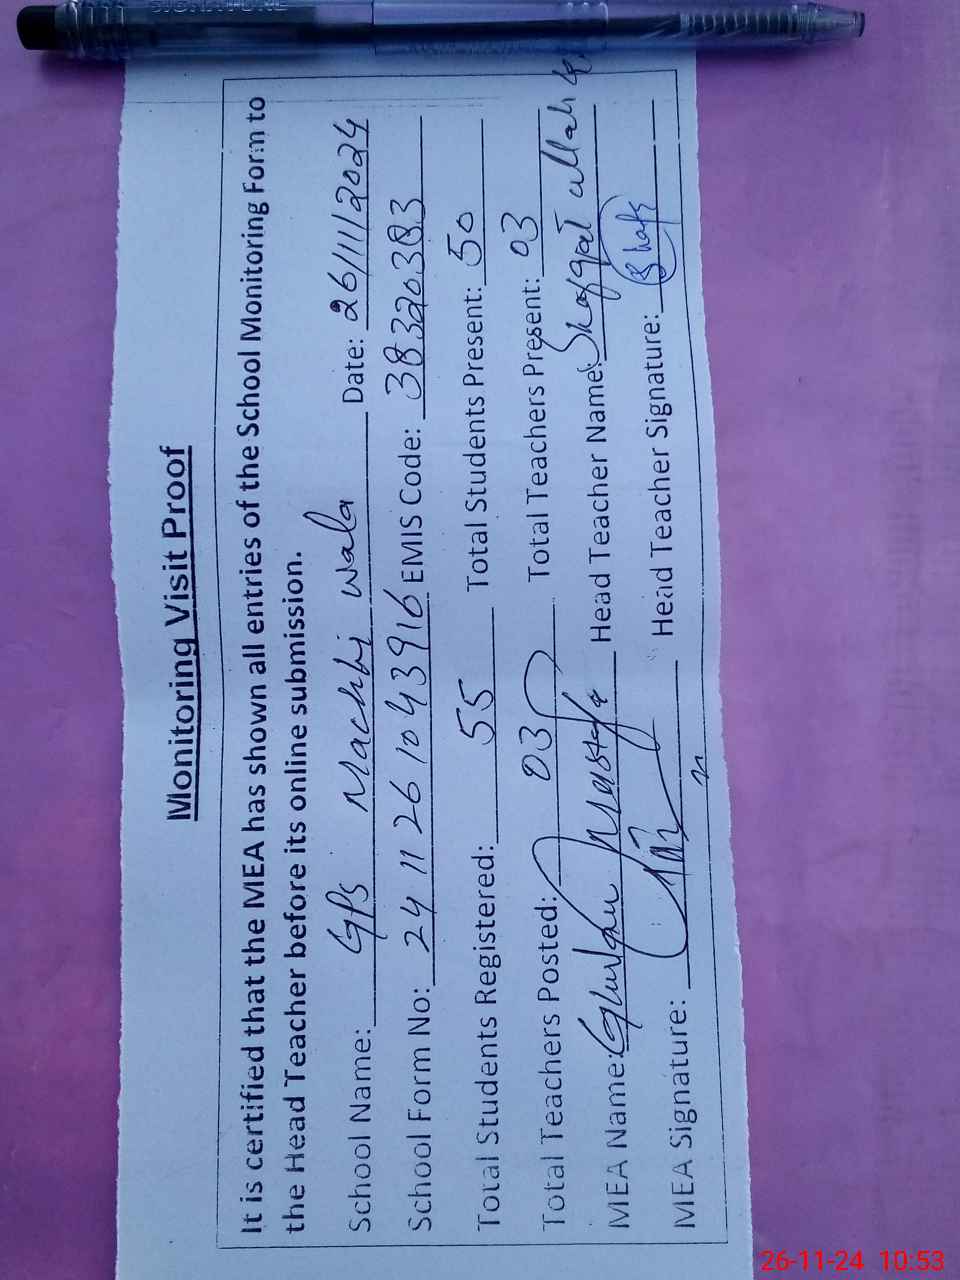 SIGNATURE
Monitoring Visit Proof
It is certified that the MEA has shown all entries of the School Monitoring Form to
the Head Teacher before its online submission.
School Name: GPS Machhi wala Date: 26/11/2024
School Form No: 24 11 26 10 43916 EMIS Code: 38320383
Total Students Registered: 55 Total Students Present: 50
Total Teachers Posted: 03 Total Teachers Present: 03
MEA Name: Ghulam Mustafa Head Teacher Name: Shafqat ullah
MEA Signature: Head Teacher Signature: Shafq
26-11-24 10:53